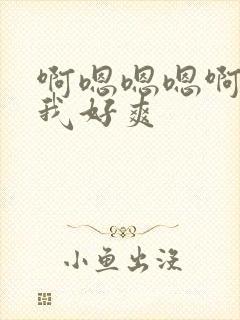 啊嗯嗯嗯啊
我好爽
小鱼出没